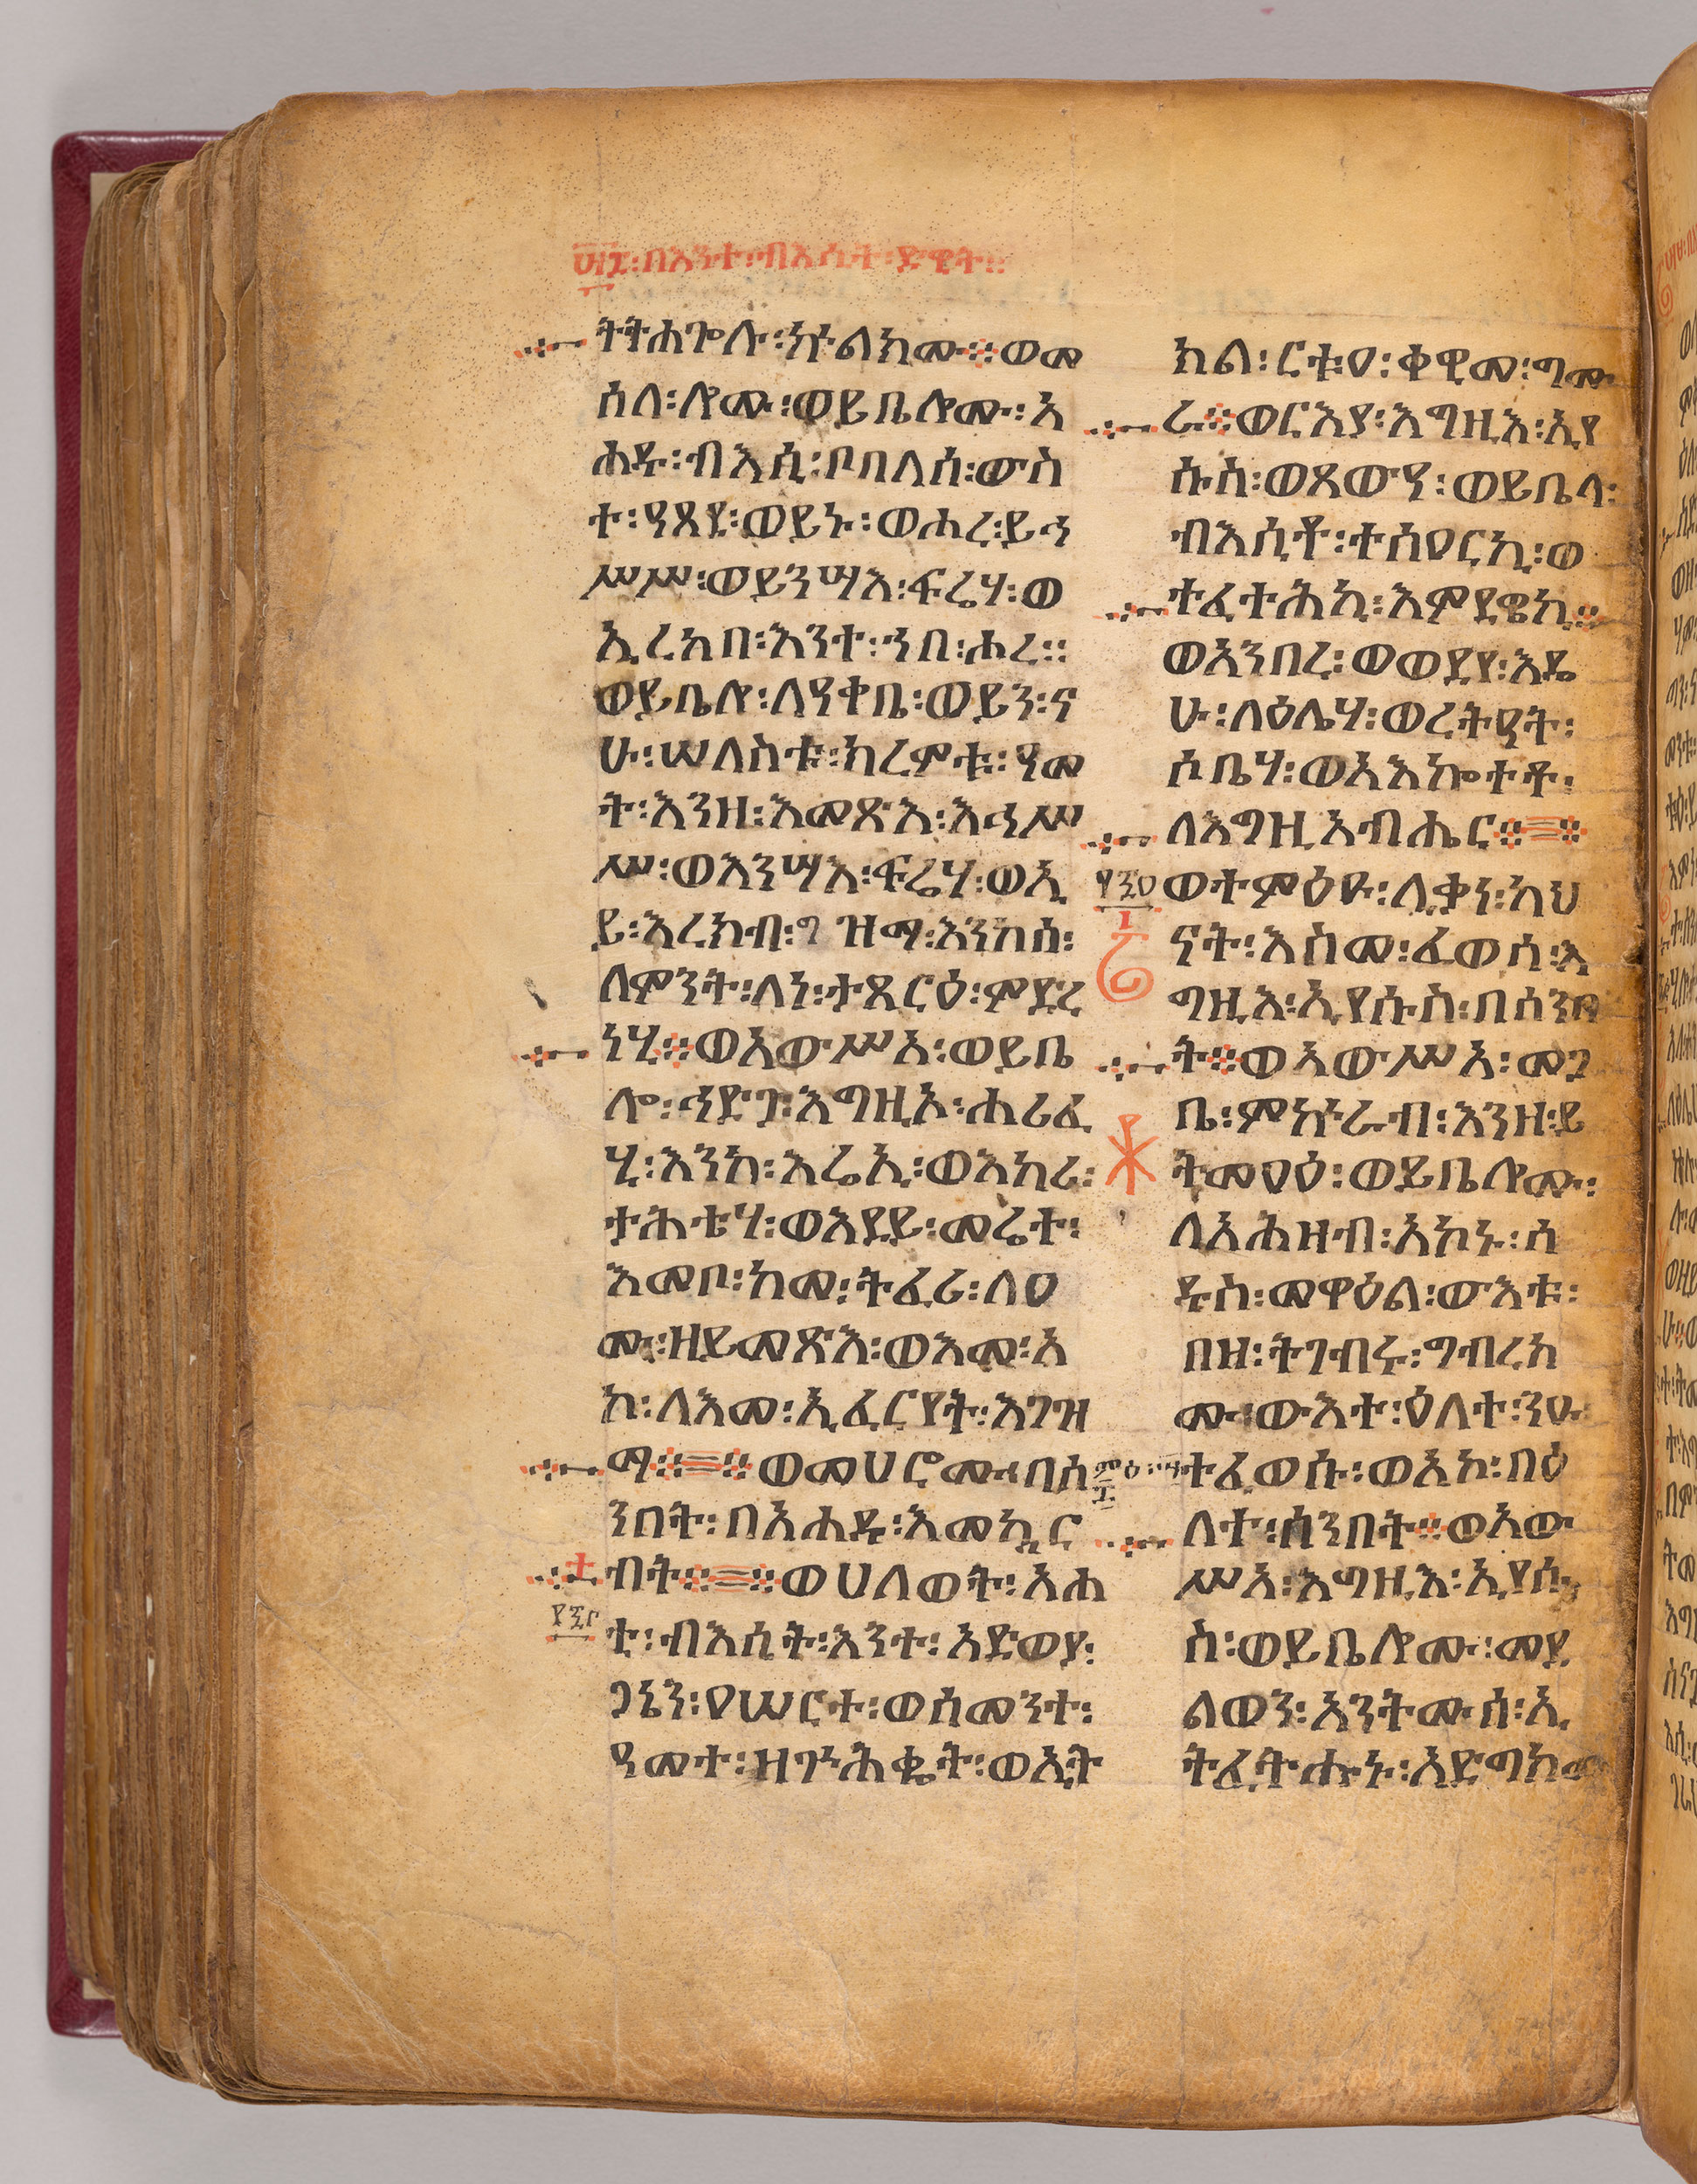 በእንተ፡ብእሲት፡ድዊት፡፡
ትትሐጐሉ፡ኵልክሙ፨ወመ
ሰለ፡ሎሙ፡ወይቤሎሙ፡አ
ሐዱ፡ብእሲ፡ቦበለሰ፡ውስ
ተ፡ዓጸደ፡ወይኑ፡ወሐረ፡ይኅ
ሥሥ፡ወይንሣእ፡ፍሬሃ፡ወ
ኢረከበ፡እንተ፡ኀበ፡ሐረ፡፡
ወይቤሎ፡ለዓቀቤ፡ወይን፡ና
ሁ፡ሠለስቱ፡ክረምቱ፡ዓመ
ት፡እንዘ፡እመጽእ፡እኅሥ
ሥ፡ወእንሣእ፡ፍሬሃ፡ወኢ
ይ፡እረክብ፡ግዝማ፡እንከሰ፡
ለምንት፡ለነ፡ታጸርዕ፡ምድረ
ነሂ፨ወአውሥአ፡ወይቤ
ሎ፡ኅድጋ፡እግዚኦ፡ሐሪፈ
ሂ፡እንከ፡እሬኢ፡ወእከሪ፡
ታሕቴሃ፡ወእደይ፡መሬተ፡
እመቦ፡ከመ፡ትፈሪ፡ለዐ
ሙ፡ዘይመጽእ፡ወእመ፡አ
ኮ፡ለእመ፡ኢፈርየት፡እገዝ
ማ፨፨ወመሀሮሙ፡በሰ
ንበት፡በአሐዱ፡እመኳር
ብት፨፨ወሀለወት፡አሐ
ቲ፡ብእሲት፡እንተ፡አድወያ፡
ጋኔን፡ዐሠርተ፡ወሰመንተ፡
ዓመተ፡ዝጐሕቂት፡ወኢት
ክል፡ርቱዐ፡ቀዊመ፡ግሙ
ረ፨ወርእያ፡እግዚእ፡ኢየ
ሱስ፡ወጸውዓ፡ወይቤላ፡
ብእሲቶ፡ተሰዐርኪ፡ወ
ተፈተሕኪ፡እምደዌኪ፨
ወአንበረ፡ወወደየ፡እዴ
ሁ፡ለዕሌሃ፡ወረትዐት፡
ሶቤሃ፡ወአእኰተቶ፡
ለእግዚአብሔር፨፨
ወተምዕዑ፡ሊቃነ፡ካህ
ናት፡እስመ፡ፈወሰ፡እ
ግዚእ፡ኢየሱስ፡በሰንበ
ት፨ወአውሥአ፡መጋ
ቤ፡ምኵራብ፡እንዘ፡ይ
ትመዐዕ፡ወይቤሎሙ፡
ለአሕዛብ፡አኮኑ፡ሰ
ዱስ፡መዋዕል፡ውእቱ፡
በዘ፡ትገብሩ፡ግብረከ
ሙ፡ውእተ፡ዕለተ፡ንዑ
ተፈወሱ፡ወአኮ፡በዕ
ለተ፡ሰንበት፨ወአው
ሥአ፡እግዚእ፡ኢየሱ
ስ፡ወይቤሎሙ፡መደ
ልወን፡አንትሙሰ፡ኢ
ትፈትሑኑ፡አድግክሙ